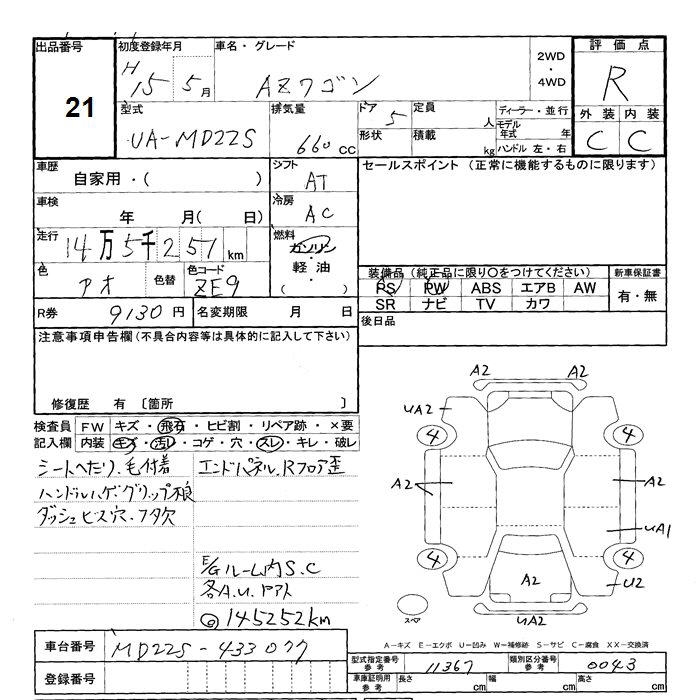 出品番号 21
初度登録年月 H15 5月
車名・グレード AZワゴン
2WD ・ 4WD
評価点 R
型式 UA-MD22S
排気量 660cc
ドア 5 形状
定員 人 積載 kg
ディーラー・並行 モデル年式 年 ハンドル 左・右
外装 内装
C C
車歴 自家用・( )
シフト AT
セールスポイント (正常に機能するものに限ります)
車検 年 月( 日)
冷房 AC
走行 14万5千251km
燃料 ガソリン・軽油・( )
色 アオ 色替 色コード ZE9
装備品 (純正品に限り○をつけてください) 新車保証書
PS PW ABS エアB AW 有・無
SR ナビ TV カワ
R券 9130円 名変期限 月 日
後日品
注意事項申告欄(不具合内容等は具体的に記入して下さい)
修復歴 有 〔箇所 〕
検査員 FW キズ・飛石・ヒビ割・リペア跡・×要
記入欄 内装 キズ・汚レ・コゲ・穴・スレ・キレ・破レ
シートヘたり.毛付着 エンドパネル.Rフロア歪
ハンドルハゲ.グリップ
ダッシュビス穴.フタ欠
E/Gルーム内S.C
各A.U.
145252km
A2 A2
UA2
4 4
A2 A2
UA1
4 4
A2 U2
スペア UA2
A-キズ E-エクボ U-凹み W-補修跡 S-サビ C-腐食 XX-交換済
車台番号 MD22S-433077
型式指定番号 参考 11367 類別区分番号 参考 0043
登録番号
車庫証明用 参考 長さ cm 幅 cm 高さ cm